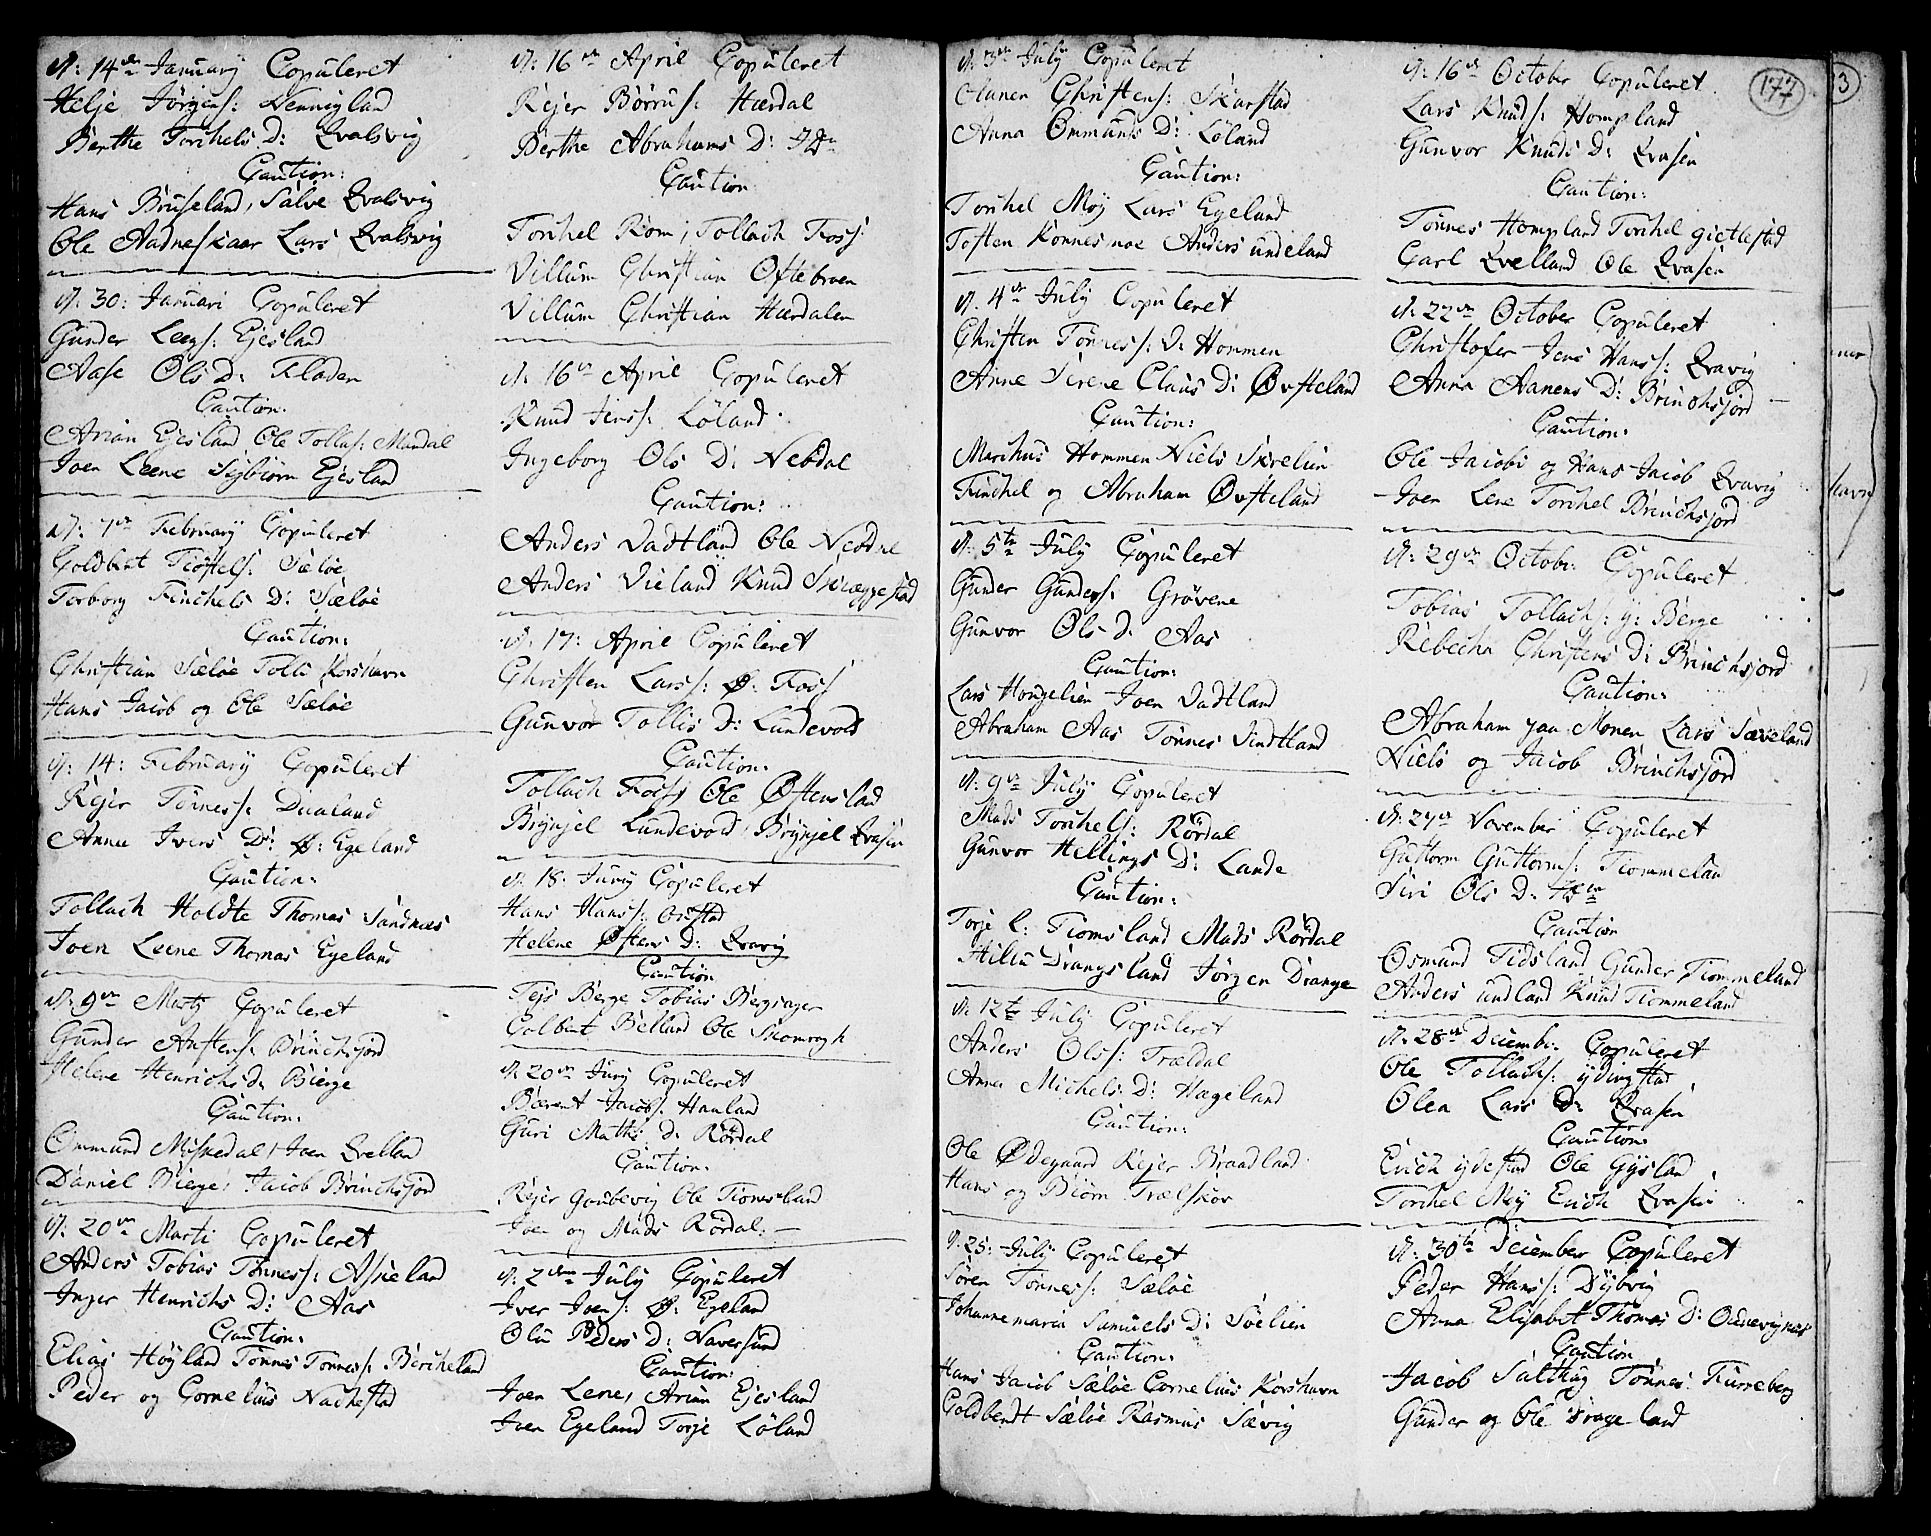 d: 14de January Copuleret
Helje Jörgens: Nennigland
Berthe Torchels D: Qvalsvig
Caution:
Hans Bruseland, Salve Qvalsvig
Ole Aadneskaar Lars Qvalsvig
d: 30: Januari Copuleret
Gunder Leegs: Ejesland
Aase Ols D: Fladen
Caution:
Arian Ejesland Ole Tollefs: Mandal
Joen Leene Sigbiörn Ejesland
d: 7de February Copuleret
Goldbert Tiöstels: Sæløe
Torborg Finchels D: Sæløe
Caution:
Christian Sæløe Tolli Korshavn
Hans Jacob og Ole Sæløe
d: 14: February Copuleret
Rejer Tönness: Dualand
Anne Ivers D: Ø: Egeland
Caution:
Tollach Holdte Thomas Sandnæs
Joen Leene Thomas Egeland
d: 9de Martz Copuleret
Gunder Anstens: Brinchsjord
Helene Henrichs D: Bierge
Caution:
Ommund Miskedal, Joen Qvelland
Daniel Bierge, Jacob Brinchsjord
d: 20de Marti Copuleret
Anders Tobias Tönness: Askeland
Inger Henrichs D: Aas
Caution:
Elias Höyland Tönnes Tönness: Bercheland
Peder og Cornelius Nachestad
d: 16de April Copuleret
Rejer Börrus: Hærdal
Berthe Abrahams D: IDn
Caution
Torchel Rom, Tollach Foss:
Villum Christian Öftebroen
Villum Christian Hærdalen
d: 16de April Copuleret
Knud Jenss: Löland
Ingeborg Ols D: Nebdal
Caution:
Anders Vadtland Ole Nebdal
Anders Vieland Knud Skræggestad
d: 17: April Copuleret
Christen Larss: Ø: Foss
Gunvor Tollis D: Lundevold
Caution:
Tollach Foss, Ole Øftensland
Brÿnjel Lundevold, Brÿnjel Qvasen
d: 18: Juny Copuleret
Hans Hanss: Orestad
Helene Øftens D: Qvavig
Caution
Tejs Berge Tobias Bergsager
Colbent Belland Ole Skomragh
d: 20de Juny Copuleret
Bærent Jacobs: Hauland
Guri Maths D: Rördal
Caution:
Rejer Goubevig Ole Tiomesland
Joen og Mads Rördal:
d: 2den July Copuleret
Iver Joens: Ø: Egeland
Olu Peders D: Naversund
Caution:
Joen Lene, Arian Ejesland
Joen Egeland Torje Löland
d: 3de July Copuleret
Olunen Christens: Skarstad
Anna Ommunds D: Löland
Caution:
Torchel Moy Lars Egeland
Tosten Konnesmoe Anders Undeland
d: 4de July Copuleret
Christen Tönness: V: Hommen
Anne Sirene Claus D: Øvsteland
Caution:
Marchus Hommen Niels Skrelien
Finchel og Abraham Øvsteland
d: 5te July Copuleret
Gunder Gunders: Grövene
Gunvor Ols D: Aas
Caution:
Lars Hongelien Joen Vadtland
Abraham Aas Tönnes Sindtland
d: 9de July Copuleret
Mads Torchels: Rördal
Gunvor Hellings D: Lande
Caution:
Torje L: Tiomsland Mads Rördal
Hilev Drangsland Jörgen Drange
d: 12te July Copuleret
Anders Olss: Trældal
Anna Michels D: Hægeland
Caution:
Ole Ødegaard Rejer Braadland
Hans og Biörn Trælskov
d: 25: July Copuleret
Sören Tönness: Sæløe
Johannemaria Samuels D: Söelien
Caution:
Hans Jacob Sæløe Cornelius Korshavn
Goldbendt Sæløe Rasmus Sævig
177
d: 16de October Copuleret
Lars Knuds: Hompland
Gunvor Knuds D: Qvasen
Caution:
Tönnes Hompland Torchel gietlestad
Carl Qvelland Ole Qvasen
d: 22de October Copuleret
Christofer Jens Hanss: Qvavig
Anna Aanens D: Brinchsjord
Caution:
Ole Jacobs og Hans Jacob Qvavig
Joen Lene Torchel Brinchsjord
d: 29de Octobr: Copuleret
Tobias Tollachs: y: Berge
Rebecha Christens D: Brinchsjord
Caution:
Abraham paa Monen Lars Sæveland
Niels og Jacob Brinchsjord
d: 27de November Copuleret
Guttorm Guttorms: Tiommeland
Siri Ols D: ibm
Caution
Osmund Tidsland Gunder Tiommeland
Anders undland Knud Tiommeland
d: 28de Decembr: Copuleret
Ole Tollachs: ydingstad
Olea Lars D: Qvasen
Caution:
Erich ydestad Ole Gysland
Torchel Moy Erich Qvasen
d: 30te December Copuleret
Peder Hanss: Dybvig
Anna Elisabet Thomas D: Oudnevignes
Caution
Jacob Salthug Tönnes Furreberg
Gunder og Ole Drageland
3